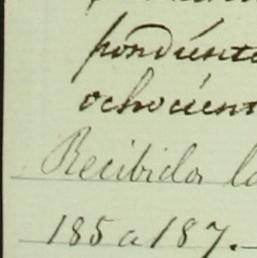 pondiente
ochocient
Recibidos la
185 a 187.-